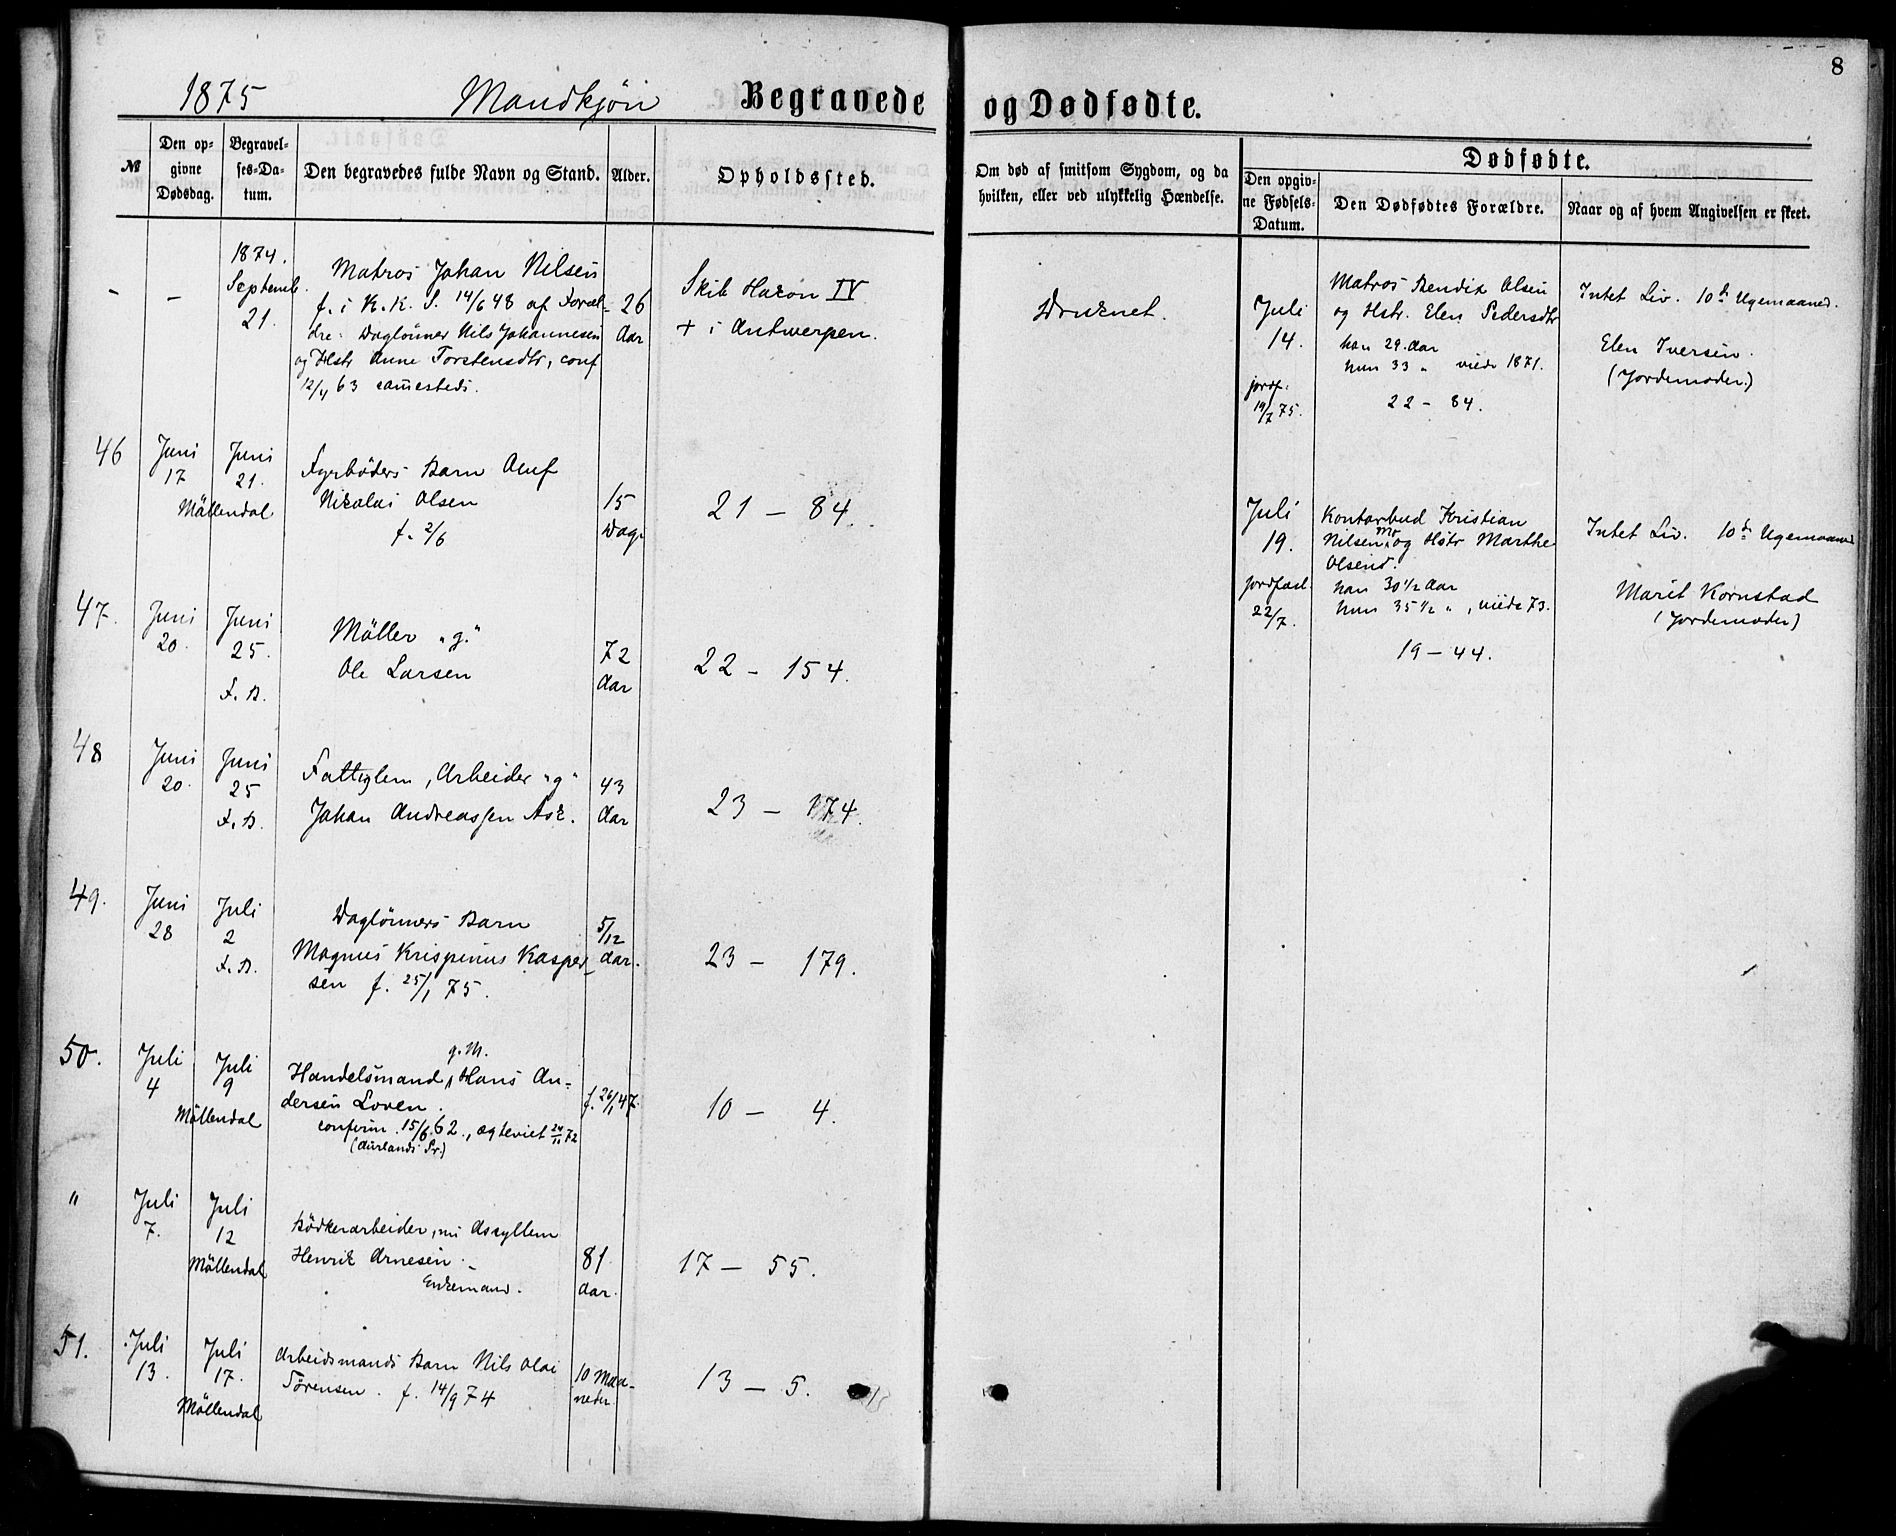 8
1875 Mandkjön Begravede og Dødfødte.
№
Den opgivne Dødsdag.
Begravelses-Datum.
Den begravedes fulde Navn og Stand.
Alder.
Opholdssted.
Om død af smitsom Sygdom, og da hvilken, eller ved ulykkelig Hændelse.
Dødfødte.
Den opgivne Fødsels-Datum.
Den Dødfødtes Forældre.
Naar og af hvem Angivelsen er skeet.
– –
1874.
Septemb.
21.
Matros Johan Nilsen
f. i K. K. S. 14/6 48 af Foræl-
dre: Daglönner Nils Johannesen
og Hstr Anne Torstensdtr, conf
12/4 63 samesteds.
26
Aar
Skib Hakon IV
+ i Antwerpen.
Druknet.
46
Juni
17
Juni
21.
Möllendal
Fyrböders Barn Oluf
Nikolai Olsen
f. 2/6
15
Dage
21 – 84.
47.
Juni
20.
Juni
25.
F. B.
Möller "g."
Ole Larsen
72
Aar
22 – 154.
48
Juni
20.
Juni
25
F. B.
Fattiglem, Arbeider "g"
Johan Andreassen Ask.
43
Aar
23 – 174.
49.
Juni
28
Juli
2
F. B.
Daglönners Barn
Magnus Krispinus Kasper-
sen f. 25/1 75.
5/12
Aar.
23 – 179.
50.
Juli
4
Juli
9
Möllendal
g. M.
Handelsmand, Hans An-
dersen Loven.
confirm. 15/6 62., ægteviet 24/11 72
(Aurlands Pr.)
f. 26/1 47.
10 – 4.
"
Juli
7.
Juli
12
Möllendal
Bödkerarbeider, nu Asyllem
Henrik Arnesen.
Enkemand.
81
Aar.
17 – 55.
51.
Juli
13.
Juli
17.
Möllendal
Arbeidsmands Barn Nils Olai
Sörensen. f. 14/9 74
10 Maa-
neder
13 – 5.
Juli
14.
jordf.
19/7 75.
Matros Bendix Olsen
og Hstr. Elen Pedersdtr
han 29 Aar
hun 33 " viede 1871.
22 – 84.
Intet Liv. 10de Ugemaaned.
Elen Iversen.
(Jordemoder.)
Juli
19.
jordfæst
22/7.
Kontorbud Kristian
Nilsen Mo og Hstr Marthe
Olsend.
han 30 1/2 Aar
hun 35 1/2 ", viede 73.
19 – 44.
Intet Liv. 10de Ugemaaned
Marit Kornstad
(Jordemoder)